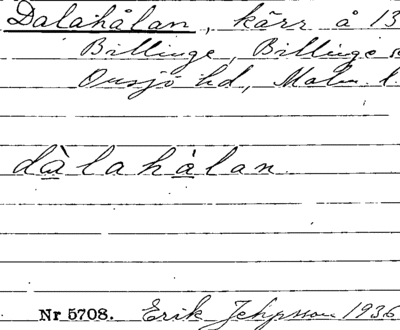 Dalahålan, kärr å 13
Billinge, Billinge s
Onsjö hd, Malm. l.
dàlahàlan.
Nr 5708. Erik Jeppsson 1936